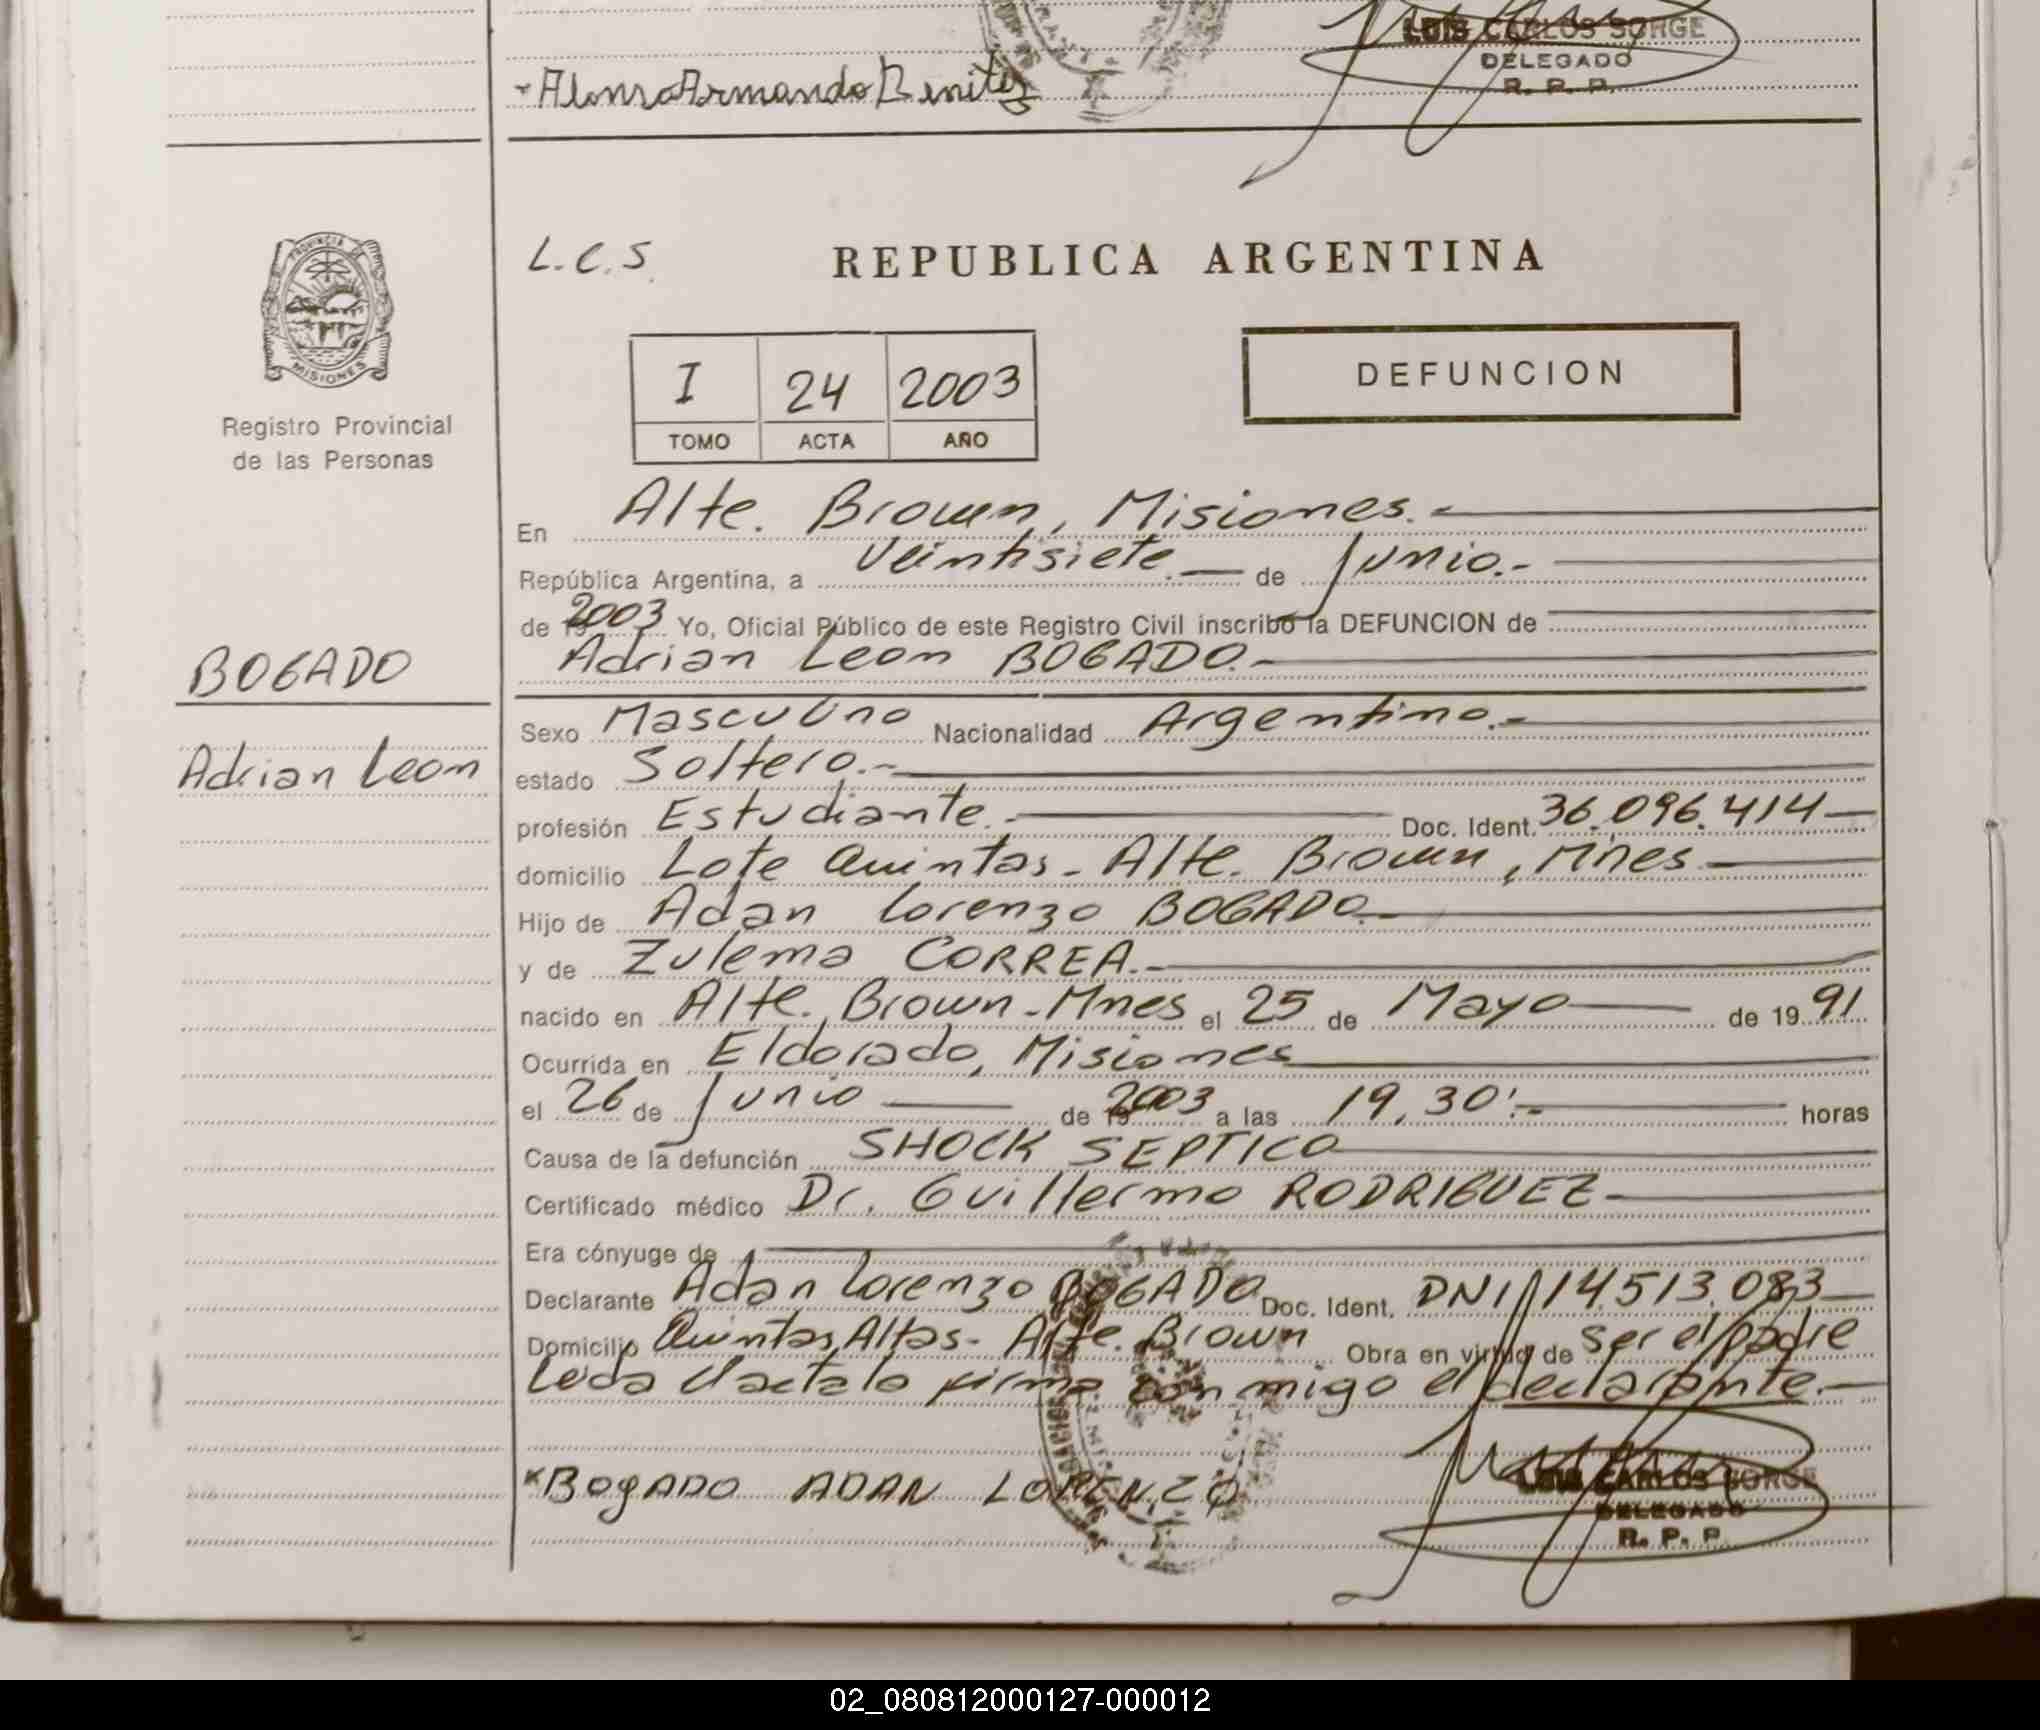 LUIS CARLOS SORGE
DELEGADO
R. P. P.
Armando Benitez
PROVINCIA DE
MISIONES
Registro Provincial
de las Personas
L.C.S.
REPUBLICA ARGENTINA
I 24 2003
TOMO ACTA AÑO
DEFUNCION
En Alte. Brown, Misiones.-
República Argentina, a Veintisiete.- de Junio.-
de 2003 Yo, Oficial Público de este Registro Civil inscribo la DEFUNCION de
Adrian Leon BOGADO.-
BOGADO
Adrian Leon
Sexo Masculino Nacionalidad Argentino.-
estado Soltero.-
profesión Estudiante.- Doc. Ident. 36.096.414-
domicilio Lote Quintas - Alte. Brown, Mnes-
Hijo de Adan Lorenzo BOGADO.-
y de Zulema CORREA.-
nacido en Alte. Brown - Mnes el 25 de Mayo de 1991
Ocurrida en Eldorado, Misiones
el 26 de Junio de 2003 a las 19,30'.- horas
Causa de la defunción SHOCK SEPTICO
Certificado médico Dr. Guillermo RODRIGUEZ-
Era cónyuge de
Declarante Adan Lorenzo BOGADO Doc. Ident. DNI 14.513.083
Domicilio Quintas Altas - Alte. Brown Obra en virtud de ser el padre
Leida el acta la firma conmigo el declarante.-
x BOgADO ADAN LORENZO
LUIS CARLOS SORGE
DELEGADO
R. P. P.
02_080812000127-000012